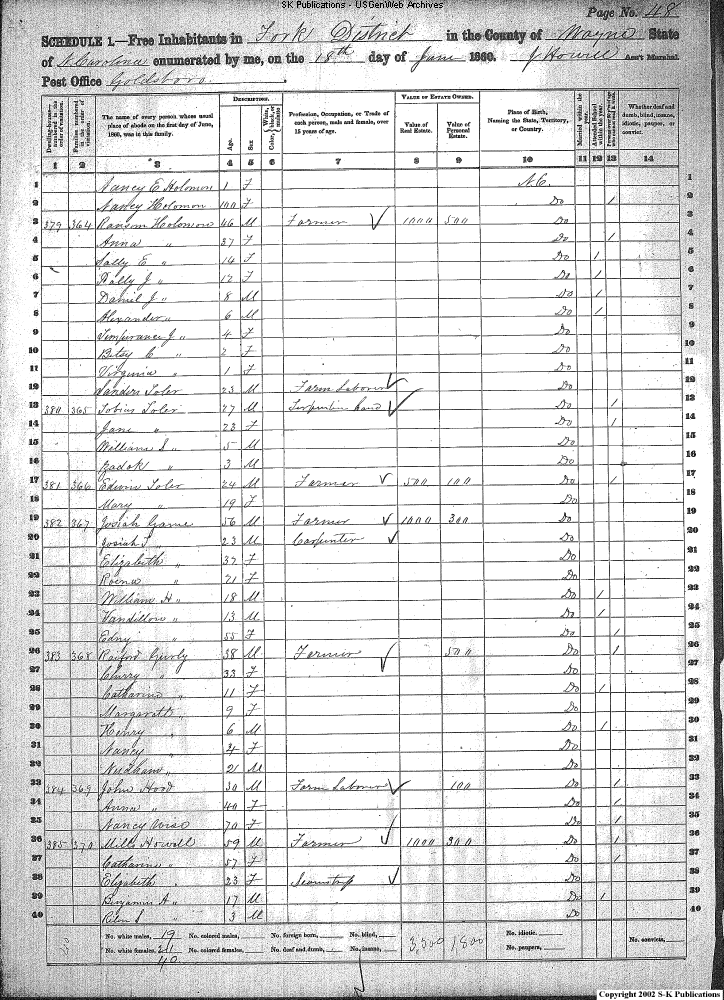 SK Publications - USGenWeb Archives
Page No. 48
SCHEDULE 1.—Free Inhabitants in Fork District in the County of Wayne State
of N. Carolina enumerated by me, on the 18th day of June 1860. J Howell Ass't Marshal.
Post Office Goldsboro.
Dwelling-houses—numbered in the order of visitation. Families numbered in the order of visitation. The name of every person whose usual place of abode on the first day of June, 1860, was in this family. DESCRIPTION. Age. Sex. Color, White, black, or mulatto. Profession, Occupation, or Trade of each person, male and female, over 15 years of age. VALUE OF ESTATE OWNED. Value of Real Estate. Value of Personal Estate. Place of Birth, Naming the State, Territory, or Country. Married within the year. Attended School within the year. Whether deaf and dumb, blind, insane, idiotic, pauper, or convict.
1 2 3 4 5 6 7 8 9 10 11 12 13 14
1 Nancy E Holomon 1 F N.C. 1
2 Nancy Holomon 100 F Do / 2
3 379 364 Ransom Holomon 46 M Farmer 1000 500 Do 3
4 Anna " 37 F Do / 4
5 Sally E " 14 F Do / 5
6 J " 12 F Do / 6
7 Daniel J " 8 M Do / 7
8 Alexander " 6 M Do / 8
9 Temperance J " 4 F Do 9
10 Betsy C " 2 F Do 10
11 Virginia " 1 F Do 11
12 Sanders Toler 23 M Farm Laborer Do 12
13 380 365 Tobius Toler 27 M Turpentine hand Do / 13
14 Jane " 23 F Do / 14
15 William S " 5 M Do 15
16 Zadok " 3 M Do 16
17 381 366 Edwin Toler 24 M Farmer 500 100 Do / 17
18 Mary " 19 F Do 18
19 382 367 Josiah 56 M Farmer 1000 300 Do 19
20 Josiah " 23 M Carpenter Do 20
21 Elizabeth " 37 F Do 21
22 " 21 F Do 22
23 William H " 18 M Do / 23
24 " 13 M Do / 24
25 Edny " 55 F Do / 25
26 383 368 Raiford Gurly 38 M Farmer 500 Do / 26
27 " 33 F Do / 27
28 Catharine " 11 F Do / 28
29 Margarett " 9 F Do 29
30 Henry " 6 M Do / 30
31 Nancy " 4 F Do 31
32 Needham " 21 M Do 32
33 384 369 John Hood 30 M Farm Laborer 100 Do / 33
34 Anna " 40 F Do / 34
35 Nancy Wise 70 F Do / 35
36 385 370 Mills Howell 59 M Farmer 1000 300 Do / 36
37 Catharine " 57 F Do / 37
38 Elizabeth " 23 F Seamstress Do 38
39 Benjamin A " 17 M Do / 39
40 S " 3 M Do 40
No. white males, 19 No. colored males, No. foreign born, No. blind, No. idiotic,
No. white females, 21 No. colored females, No. deaf and dumb, No. insane, 3,500 1800 No. paupers, No. convicts,
40
Copyright 2002 S-K Publications